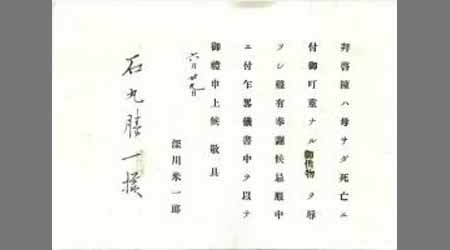 拜啓陳ハ母サダ死亡ニ
付御叮重ナル御供物ヲ辱
フシ難有奉謝候忌服中
ニ付乍畧儀書中ヲ以テ
御禮申上候敬具
六月廿九日
深川米一郎
石丸勝一様